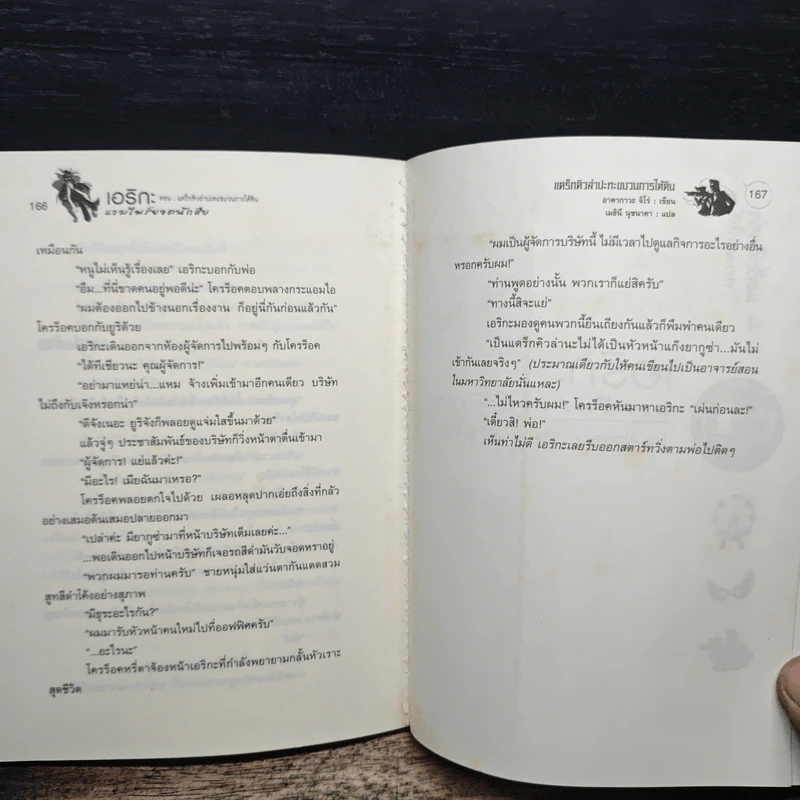 166
เอริกะ ตอน : แดร็กคิวล่าปะทะขบวนการใต้ดิน
แวมไพร์ยอดนักสืบ
เหมือนกัน
“หนูไม่เห็นรู้เรื่องเลย” เอริกะบอกกับพ่อ
“อืม...ที่นี่ขาดคนอยู่พอดีน่ะ” โครร็อคตอบพลางกระแอมไอ
“ผมต้องออกไปข้างนอกเรื่องงาน ก็อยู่นี่กันก่อนแล้วกัน”
โครร็อคบอกกับยูริด้วย
เอริกะเดินออกจากห้องผู้จัดการไปพร้อมๆ กับโครร็อค
“ได้ทีเชียวนะ คุณผู้จัดการ!”
“อย่ามาแหย่น่า...แหม จ้างเพิ่มเข้ามาอีกคนเดียว บริษัท
ไม่ถึงกับเจ๊งหรอกน่า”
“ดีจังเนอะ ยูริจังก็พลอยดูแจ่มใสขึ้นมาด้วย”
แล้วจู่ๆ ประชาสัมพันธ์ของบริษัทก็วิ่งหน้าตาตื่นเข้ามา
“ผู้จัดการ! แย่แล้วค่ะ!”
“มีอะไร! เมียฉันมาเหรอ?”
โครร็อคพลอยตกใจไปด้วย เผลอหลุดปากเอ่ยถึงสิ่งที่กลัว
อย่างเสมอต้นเสมอปลายออกมา
“เปล่าค่ะ มียากูซ่ามาที่หน้าบริษัทเต็มเลยค่ะ...”
...พอเดินออกไปหน้าบริษัทก็เจอรถสีดำมันวับจอดหราอยู่
“พวกผมมารอท่านครับ” ชายหนุ่มใส่แว่นตากันแดดสวม
สูทสีดำโค้งอย่างสุภาพ
“มีธุระอะไรกัน?”
“ผมมารับหัวหน้าคนใหม่ไปที่ออฟฟิศครับ”
“...อะไรนะ”
โครร็อคหรี่ตาจ้องหน้าเอริกะที่กำลังพยายามกลั้นหัวเราะ
สุดชีวิต
แดร็กคิวล่าปะทะขบวนการใต้ดิน
อาคากาวะ จิโร่ : เขียน
เมธินี นุชนาคา : แปล
167
“ผมเป็นผู้จัดการบริษัทนี้ ไม่มีเวลาไปดูแลกิจการอะไรอย่างอื่น
หรอกครับผม!”
“ท่านพูดอย่างนั้น พวกเราก็แย่สิครับ”
“ทางนี้สิจะแย่”
เอริกะมองดูคนพวกนี้ยืนเถียงกันแล้วก็พึมพำคนเดียว
“เป็นแดร็กคิวล่านะไม่ได้เป็นหัวหน้าแก๊งยากูซ่า...มันไม่
เข้ากันเลยจริงๆ” (ประมาณเดียวกับให้คนเขียนไปเป็นอาจารย์สอน
ในมหาวิทยาลัยนั่นแหละ)
“...ไม่ไหวครับผม!” โครร็อคหันมาหาเอริกะ “เผ่นก่อนละ!”
“เดี๋ยวสิ! พ่อ!”
เห็นท่าไม่ดี เอริกะเลยรีบออกสตาร์ทวิ่งตามพ่อไปติดๆ